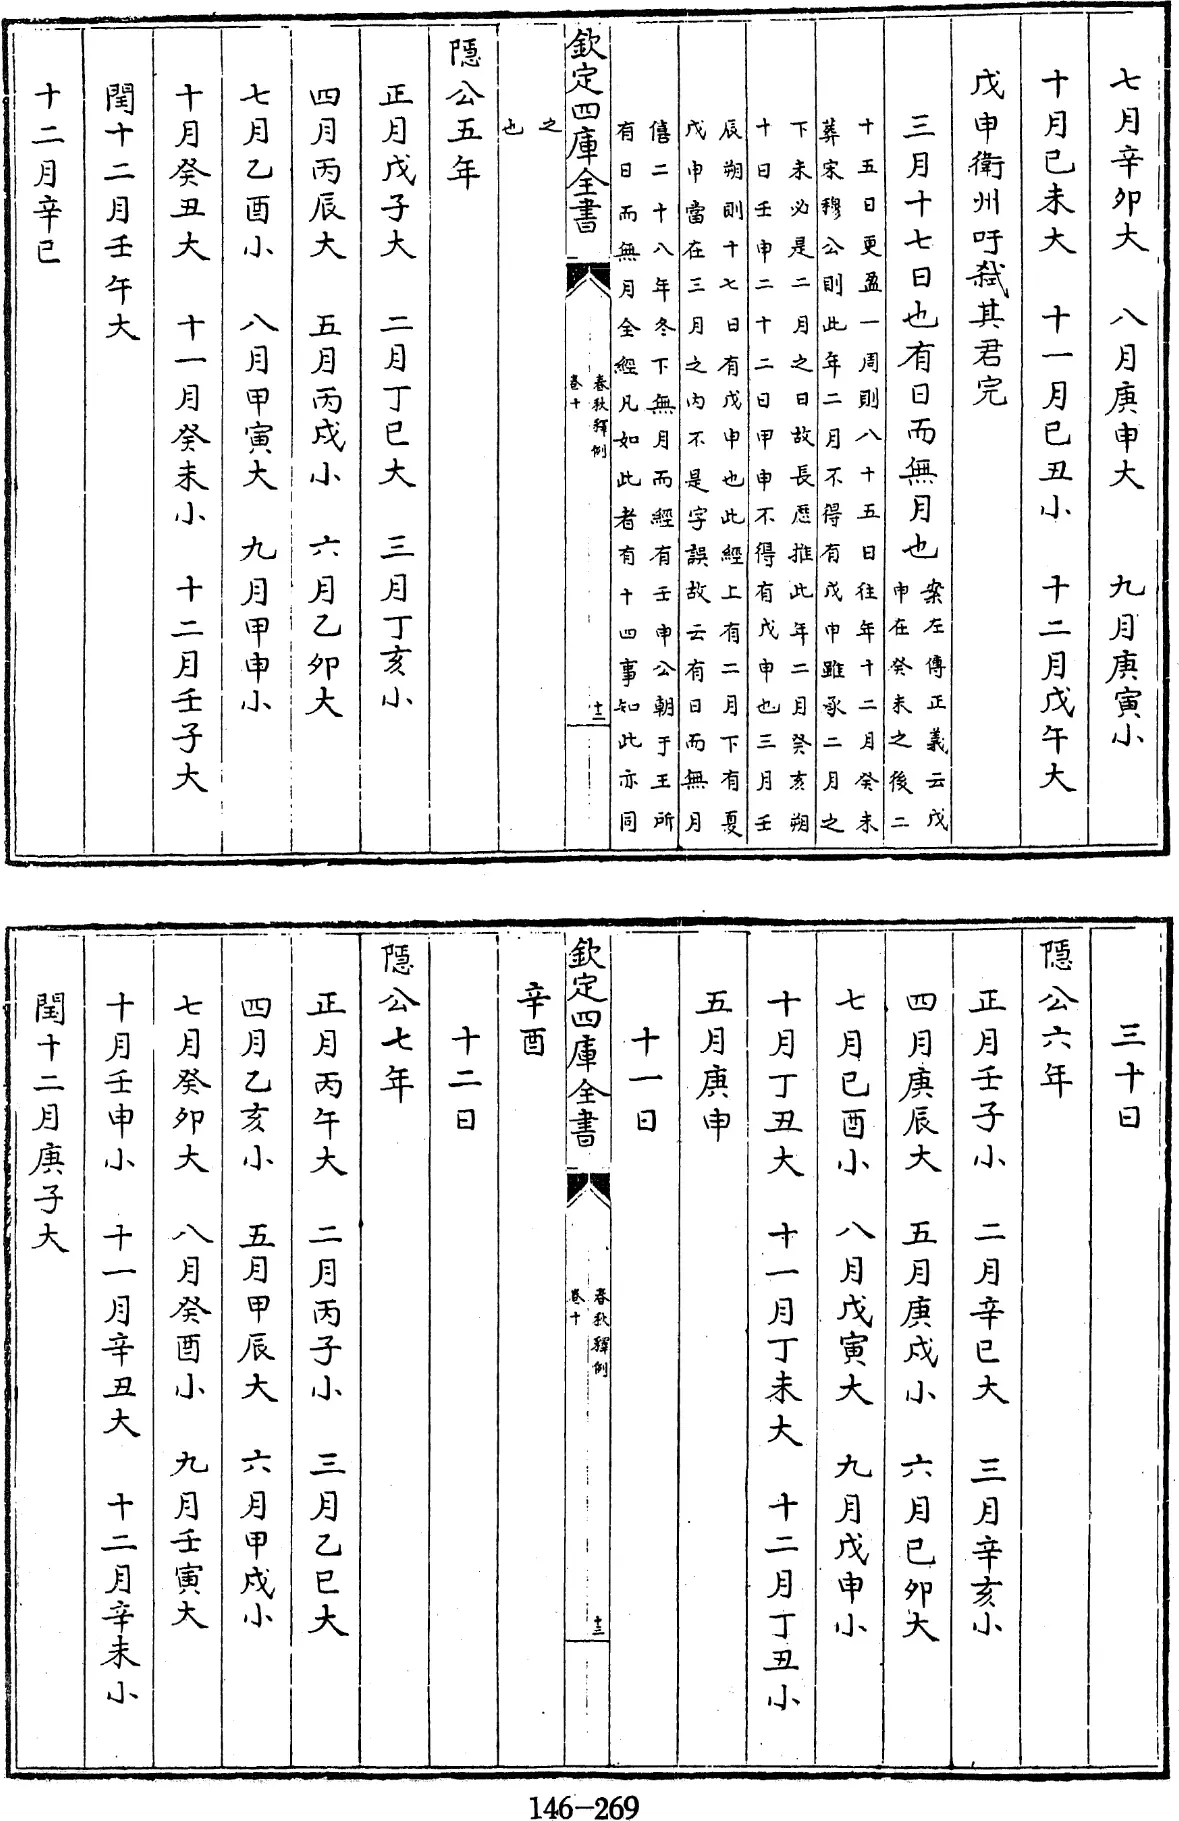 七月辛卯大 八月庚申大 九月庚寅小
十月己未大 十一月己丑小 十二月戊午大
戊申衛州吁弑其君完
三月十七日也有日而無月也
案左傳正義云戊
申在癸未之後二
十五日更盈一周則八十五日往年十二月癸未
葬宋穆公則此年二月不得有戊申雖承二月之
下未必是二月之日故長歷推此年二月癸亥朔
十日壬申二十二日甲申不得有戊申也三月壬
辰朔則十七日有戊申也此經上有二月下有夏
戊申當在三月之內不是字誤故云有日而無月
僖二十八年冬下無月而經有壬申公朝于王所
有日而無月全經凡如此者有十四事知此亦同
欽定四庫全書
春秋釋例
卷十
十二
之
也
隱公五年
正月戊子大 二月丁巳大 三月丁亥小
四月丙辰大 五月丙戌小 六月乙卯大
七月乙酉小 八月甲寅大 九月甲申小
十月癸丑大 十一月癸未小 十二月壬子大
閏十二月壬午大
十二月辛巳
三十日
隱公六年
正月壬子小 二月辛巳大 三月辛亥小
四月庚辰大 五月庚戌小 六月己卯大
七月己酉小 八月戊寅大 九月戊申小
十月丁丑大 十一月丁未大 十二月丁丑小
五月庚申
十一日
欽定四庫全書
春秋釋例
卷十
十三
辛酉
十二日
隱公七年
正月丙午大 二月丙子小 三月乙巳大
四月乙亥小 五月甲辰大 六月甲戌小
七月癸卯大 八月癸酉小 九月壬寅大
十月壬申小 十一月辛丑大 十二月辛未小
閏十二月庚子大
146-269